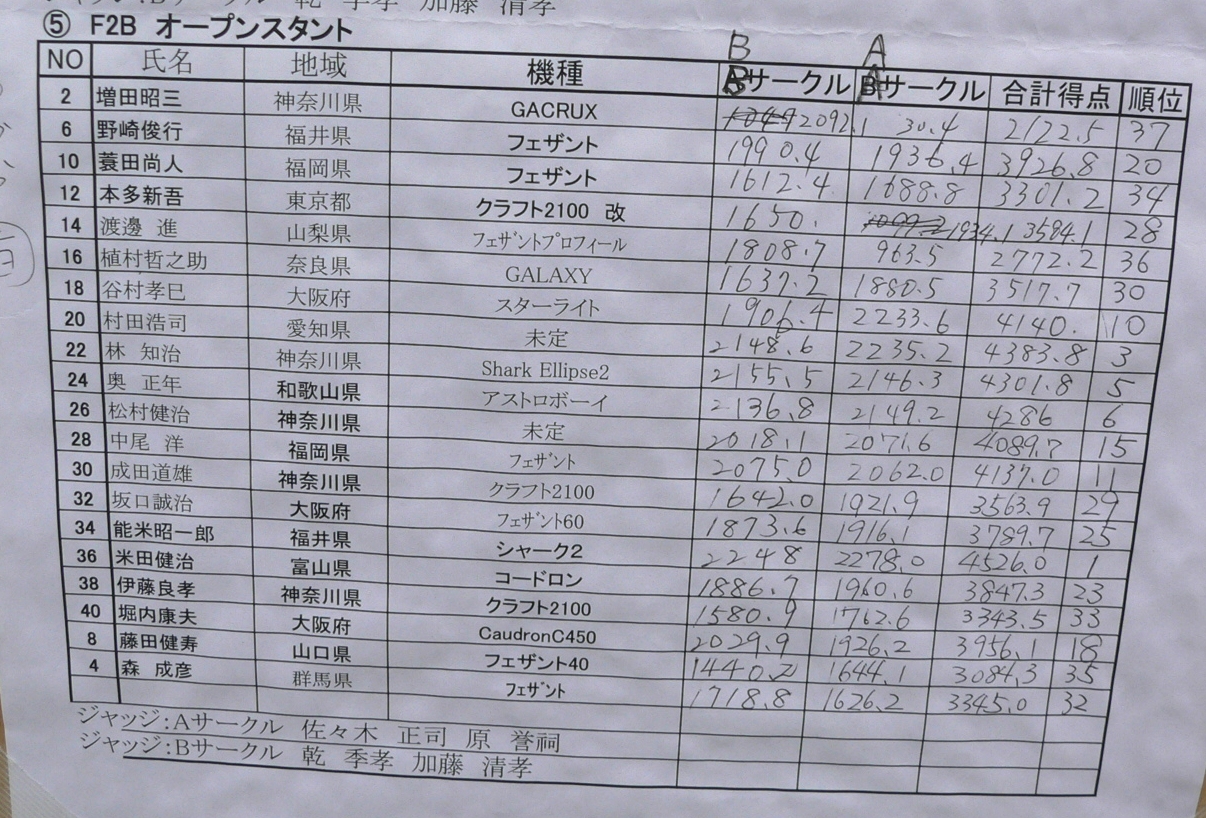 ジャッジ:Bサークル 乾 季孝 加藤 清孝
⑤ F2B オープンスタント
B A
NO 氏名 地域 機種 Aサークル Bサークル 合計得点 順位
2 増田昭三 神奈川県 GACRUX 2092.1 30.4 2122.5 37
6 野崎俊行 福井県 フェザント 1990.4 1936.4 3926.8 20
10 蓑田尚人 福岡県 フェザント 1612.4 1688.8 3301.2 34
12 本多新吾 東京都 クラフト2100 改 1650. 1934.1 3584.1 28
14 渡邊 進 山梨県 フェザントプロフィール 1808.7 963.5 2772.2 36
16 植村哲之助 奈良県 GALAXY 1637.2 1880.5 3517.7 30
18 谷村孝巳 大阪府 スターライト 1906.4 2233.6 4140. 10
20 村田浩司 愛知県 未定 2148.6 2235.2 4383.8 3
22 林 知治 神奈川県 Shark Ellipse2 2155.5 2146.3 4301.8 5
24 奥 正年 和歌山県 アストロボーイ 2136.8 2149.2 4286 6
26 松村健治 神奈川県 未定 2018.1 2071.6 4089.7 15
28 中尾 洋 福岡県 フェザント 2075.0 2062.0 4137.0 11
30 成田道雄 神奈川県 クラフト2100 1642.0 1921.9 3563.9 29
32 坂口誠治 大阪府 フェザント60 1873.6 1916.1 3789.7 25
34 能米昭一郎 福井県 シャーク2 2248 2278.0 4526.0 1
36 米田健治 富山県 コードロン 1886.7 1960.6 3847.3 23
38 伊藤良孝 神奈川県 クラフト2100 1580.9 1762.6 3343.5 33
40 堀内康夫 大阪府 CaudronC450 2029.9 1926.2 3956.1 18
8 藤田健寿 山口県 フェザント40 1440.2 1644.1 3084.3 35
4 森 成彦 群馬県 フェザント 1718.8 1626.2 3345.0 32
ジャッジ:Aサークル 佐々木 正司 原 誉祠
ジャッジ:Bサークル 乾 季孝 加藤 清孝